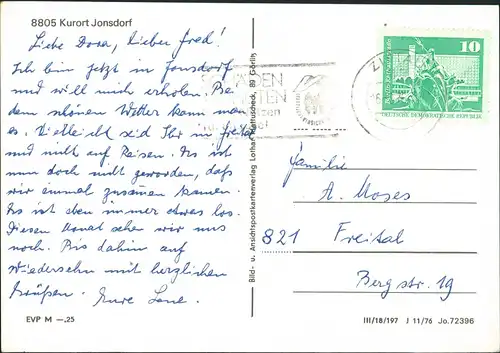 8805 Kurort Jonsdorf
Liebe Dora, lieber Fred!
Ich bin jetzt in Jonsdorf
und will mich erholen. Bei
dem schönen Wetter kann man
es. Vielleicht seid Ihr in Freital
und nicht auf Reisen. Es ist
nun doch nicht geworden, daß
wir einmal zusammen kamen.
Es ist eben immer etwas los.
Diesen Monat sehen wir uns
noch. Bis dahin auf
Wiedersehn mit herzlichen
Grüßen. Eure Lene.
EVP M —,25
Bild- u. Ansichtspostkartenverlag Lothar 89 Görlitz
10
DEUTSCHE DEMOKRATISCHE REPUBLIK
Familie
A. Moses
821 Freital
Bergstr. 19
III/18/197 J 11/76 Jo.72396